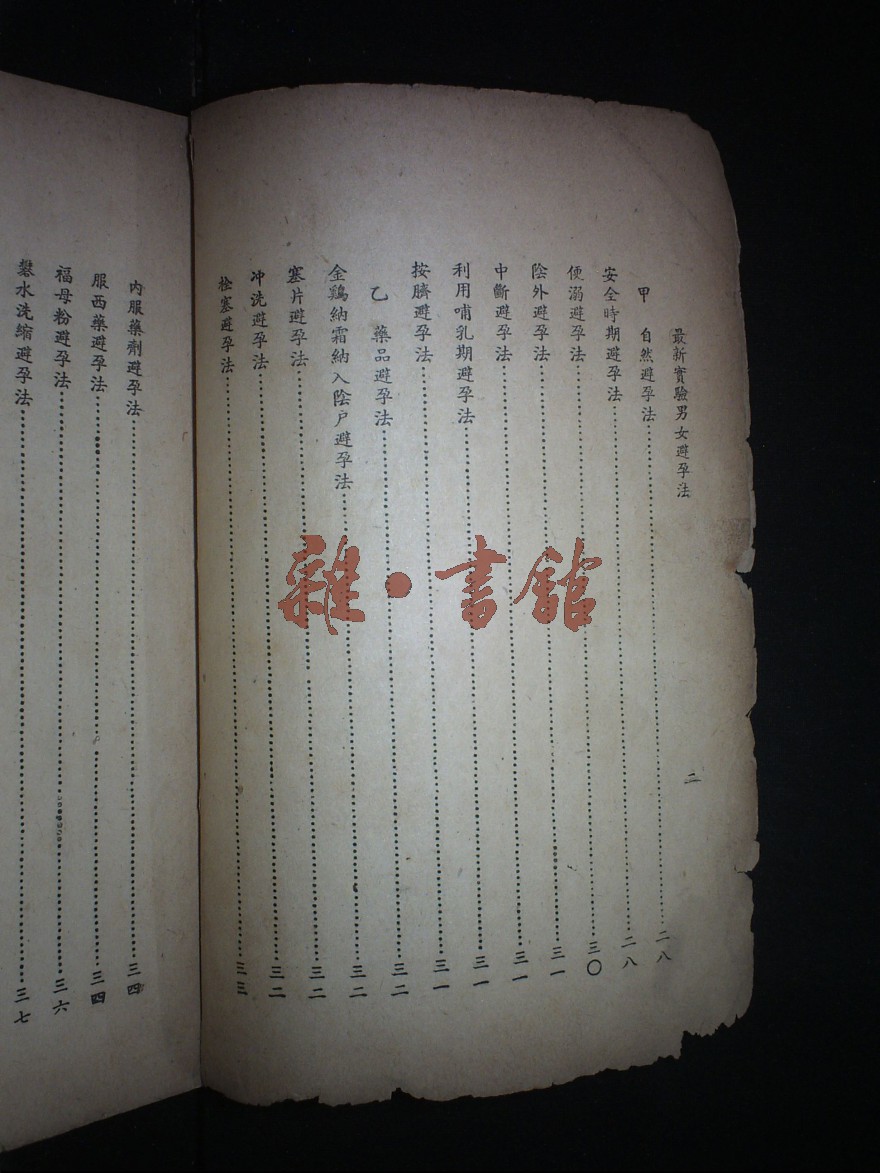 最新實驗男女避孕法
二
甲 自然避孕法……二八
安全時期避孕法……二八
便溺避孕法……三〇
陰外避孕法……三一
中斷避孕法……三一
利用哺乳期避孕法……三一
按臍避孕法……三一
乙 藥品避孕法……三二
金鷄納霜納入陰戶避孕法……三二
塞片避孕法……三二
冲洗避孕法……三二
栓塞避孕法……三三
內服藥劑避孕法……三四
服西藥避孕法……三四
福母粉避孕法……三六
礬水洗縮避孕法……三七
雜·書館